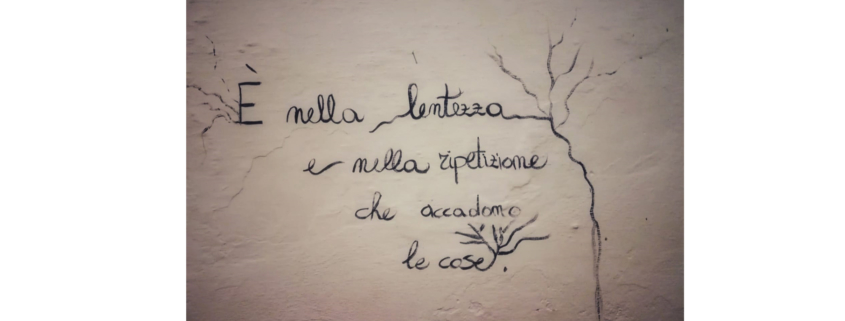 È nella lentezza
e nella ripetizione
che accadono
le cose.